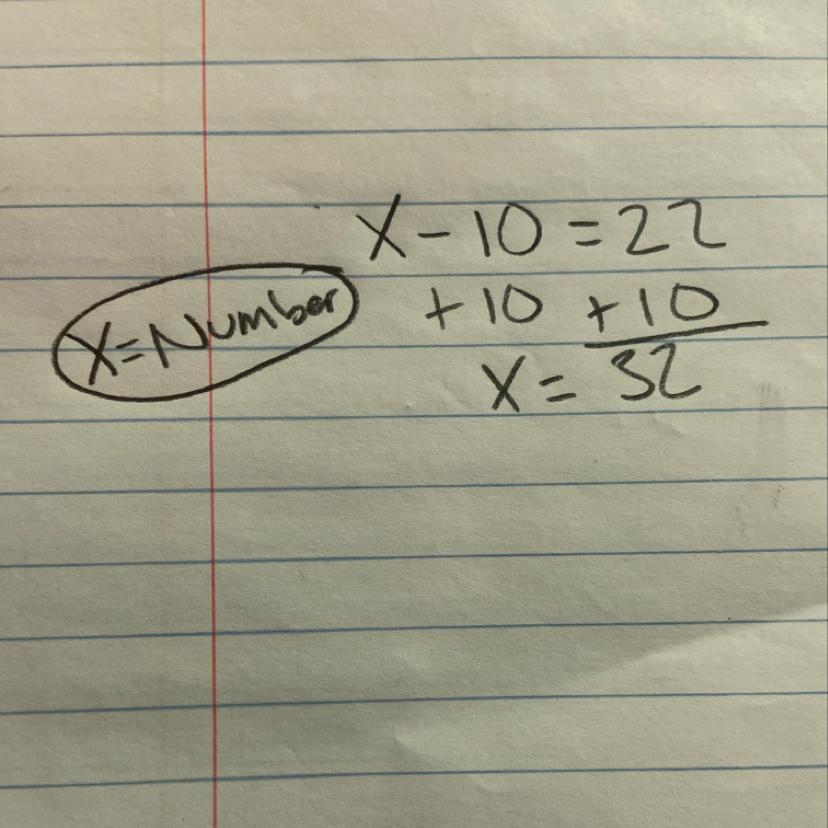 X - 10 = 22
+ 10 + 10
X = 32
X = Number